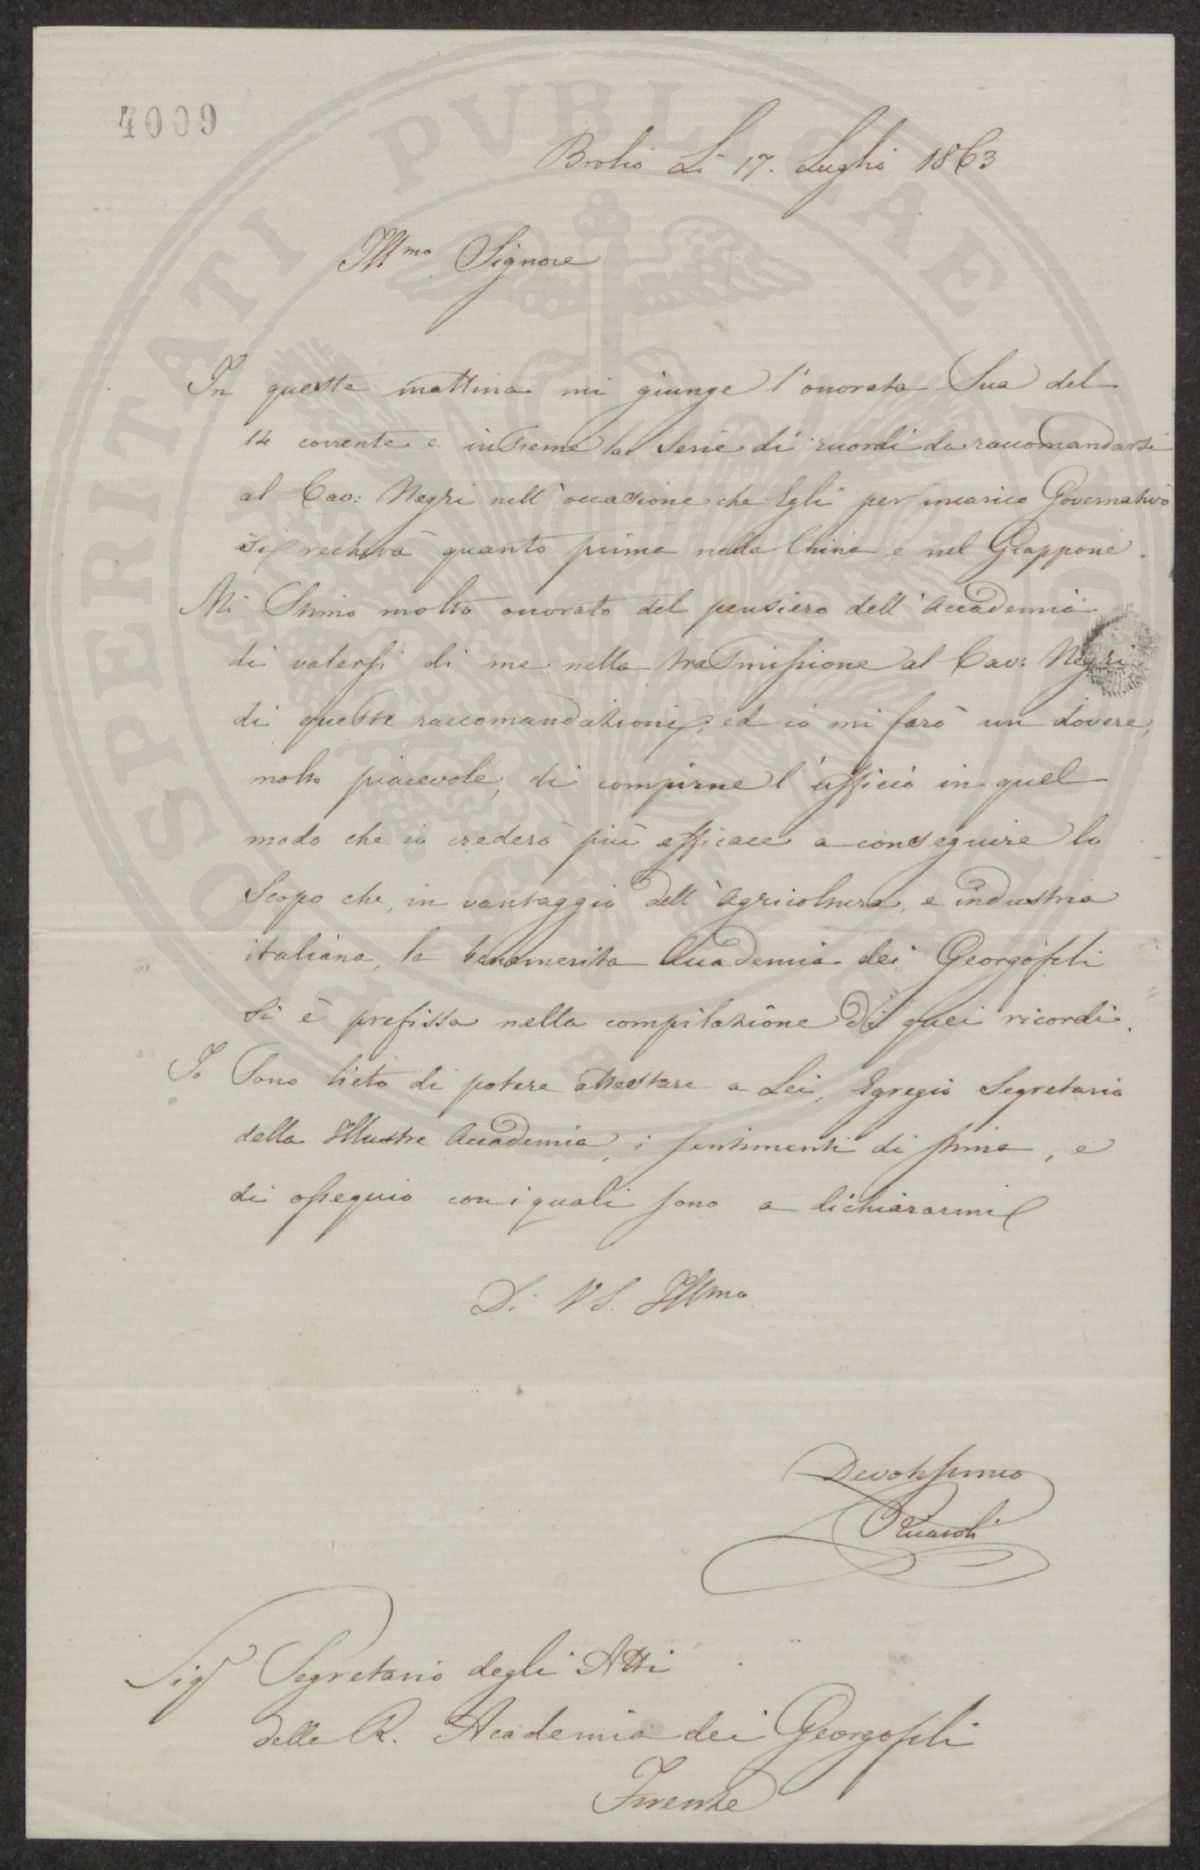 4009
Brolio Lì 17. Luglio 1863
Ill.mo Signore
In questa mattina mi giunge l'onorata Sua del
14 corrente e insieme la Serie di ricordi da raccomandarsi
al Cav: Negri nell'occasione che Egli per incarico Governativo
si recherà quanto prima nella China e nel Giappone.
Mi Stimo molto onorato del pensiero dell'Accademia
di valersi di me nella trasmissione al Cav: Negri
di queste raccomandazioni; ed io mi farò un dovere,
molto piacevole, di compirne l'ufficio in quel
modo che io crederò più efficace a conseguire lo
Scopo che, in vantaggio dell'Agricoltura, e industria
italiana, la benemerita Accademia dei Georgofili
Si è prefissa nella compilazione di quei ricordi.
Io Sono lieto di potere attestare a Lei, Egregio Segretario
della Illustre Accademia, i sentimenti di stima, e
di ossequio con i quali sono a dichiararmi
Di V S. Ill.ma
Devotissimo
Ricasoli
Sig.r Segretario degli Atti
della R. Accademia dei Georgofili
Firenze
PROSPERITATI PVBLICAE AVGENDAE